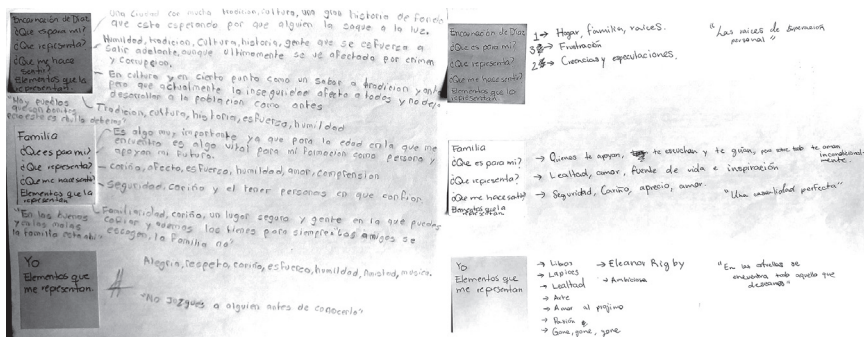 Encarnación de Díaz
¿Que es para mi?
¿Que representa?
¿Que me hace sentir?
Elementos que la representan
Una ciudad con mucha tradicion, cultura, una gran historia de fondo
que esta esperando por que alguien la saque a la luz.
Humildad, tradicion, Cultura, historia, gente que se esfuerza a
Salir adelante, aunque ultimamente se ve afectada por crimen
y corrupcion.
En cultura y en cierto punto como un sabor a tradicion y antes
pero que actualmente la inseguridad afecta a todos y no deja
desarrollar a la poblacion como antes
Tradicion, cultura, historia, esfuerzo, humildad
"Hay pueblos
que son bonitos
pero este es chulo de
Familia
¿Que es para mi?
¿Que representa?
¿Que me hace sentir?
Elementos que la representan
Es algo muy importante ya que para la edad en la que me
encuentro es algo vital para mi formacion como persona y
apoyan mi futuro.
cariño, afecto, esfuerzo, humildad, amor, comprension
Seguridad, cariño y el tener personas en que confiar.
Familiaridad, cariño, un lugar seguro y gente en la que puedes
confiar y los tienes para siempre los amigos se
escogen, la Familia no?
"En las buenas
y en las malas
la familia esta ahi"
Yo
Elementos que
me representan.
Alegria, respeto, cariño, esfuerzo, humildad, Amistad, musica.
"No Juzgues a alguien antes de conocerlo"
Encarnación de Díaz
¿Que es para mi?
¿Que representa?
¿Que me hace sentir?
Elementos que la representan
1 → Hogar, familia, raices.
3 → Frustración
2 → Creencias y especulaciones.
"Las raices de
personal"
Familia
¿Que es para mi?
¿Que representa?
¿Que me hace sentir?
Elementos que la representan
→ Quienes te apoyan, te escuchan y te guian, por sobre todo te aman
incondicionalmente.
→ Lealtad, amor, fuente de vida e inspiración
→ Seguridad, Cariño, aprecio, amor.
"Una casualidad perfecta"
Yo
Elementos que
me representan
→ Libros
→ Lapices
→ Lealtad
→ Arte
→ Amor al projimo
→ Pasión
→ Gone, gone, gone
→ Eleanor Rigby
→ Ambiciosa
"En las estrellas se
encuentra todo aquello que
deseamos"